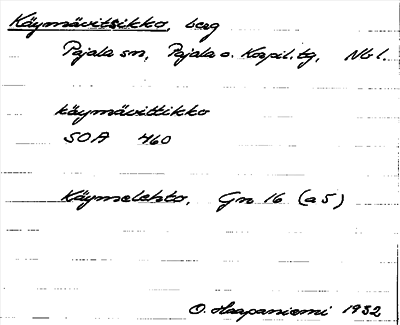 Käymävitsikko, berg
Pajala sn, Pajala o. Korpil. tg, Nbl.
käymävittikko
SOA 460
Käymelehto, Gn 16 (a5)
O. Haapaniemi 1932